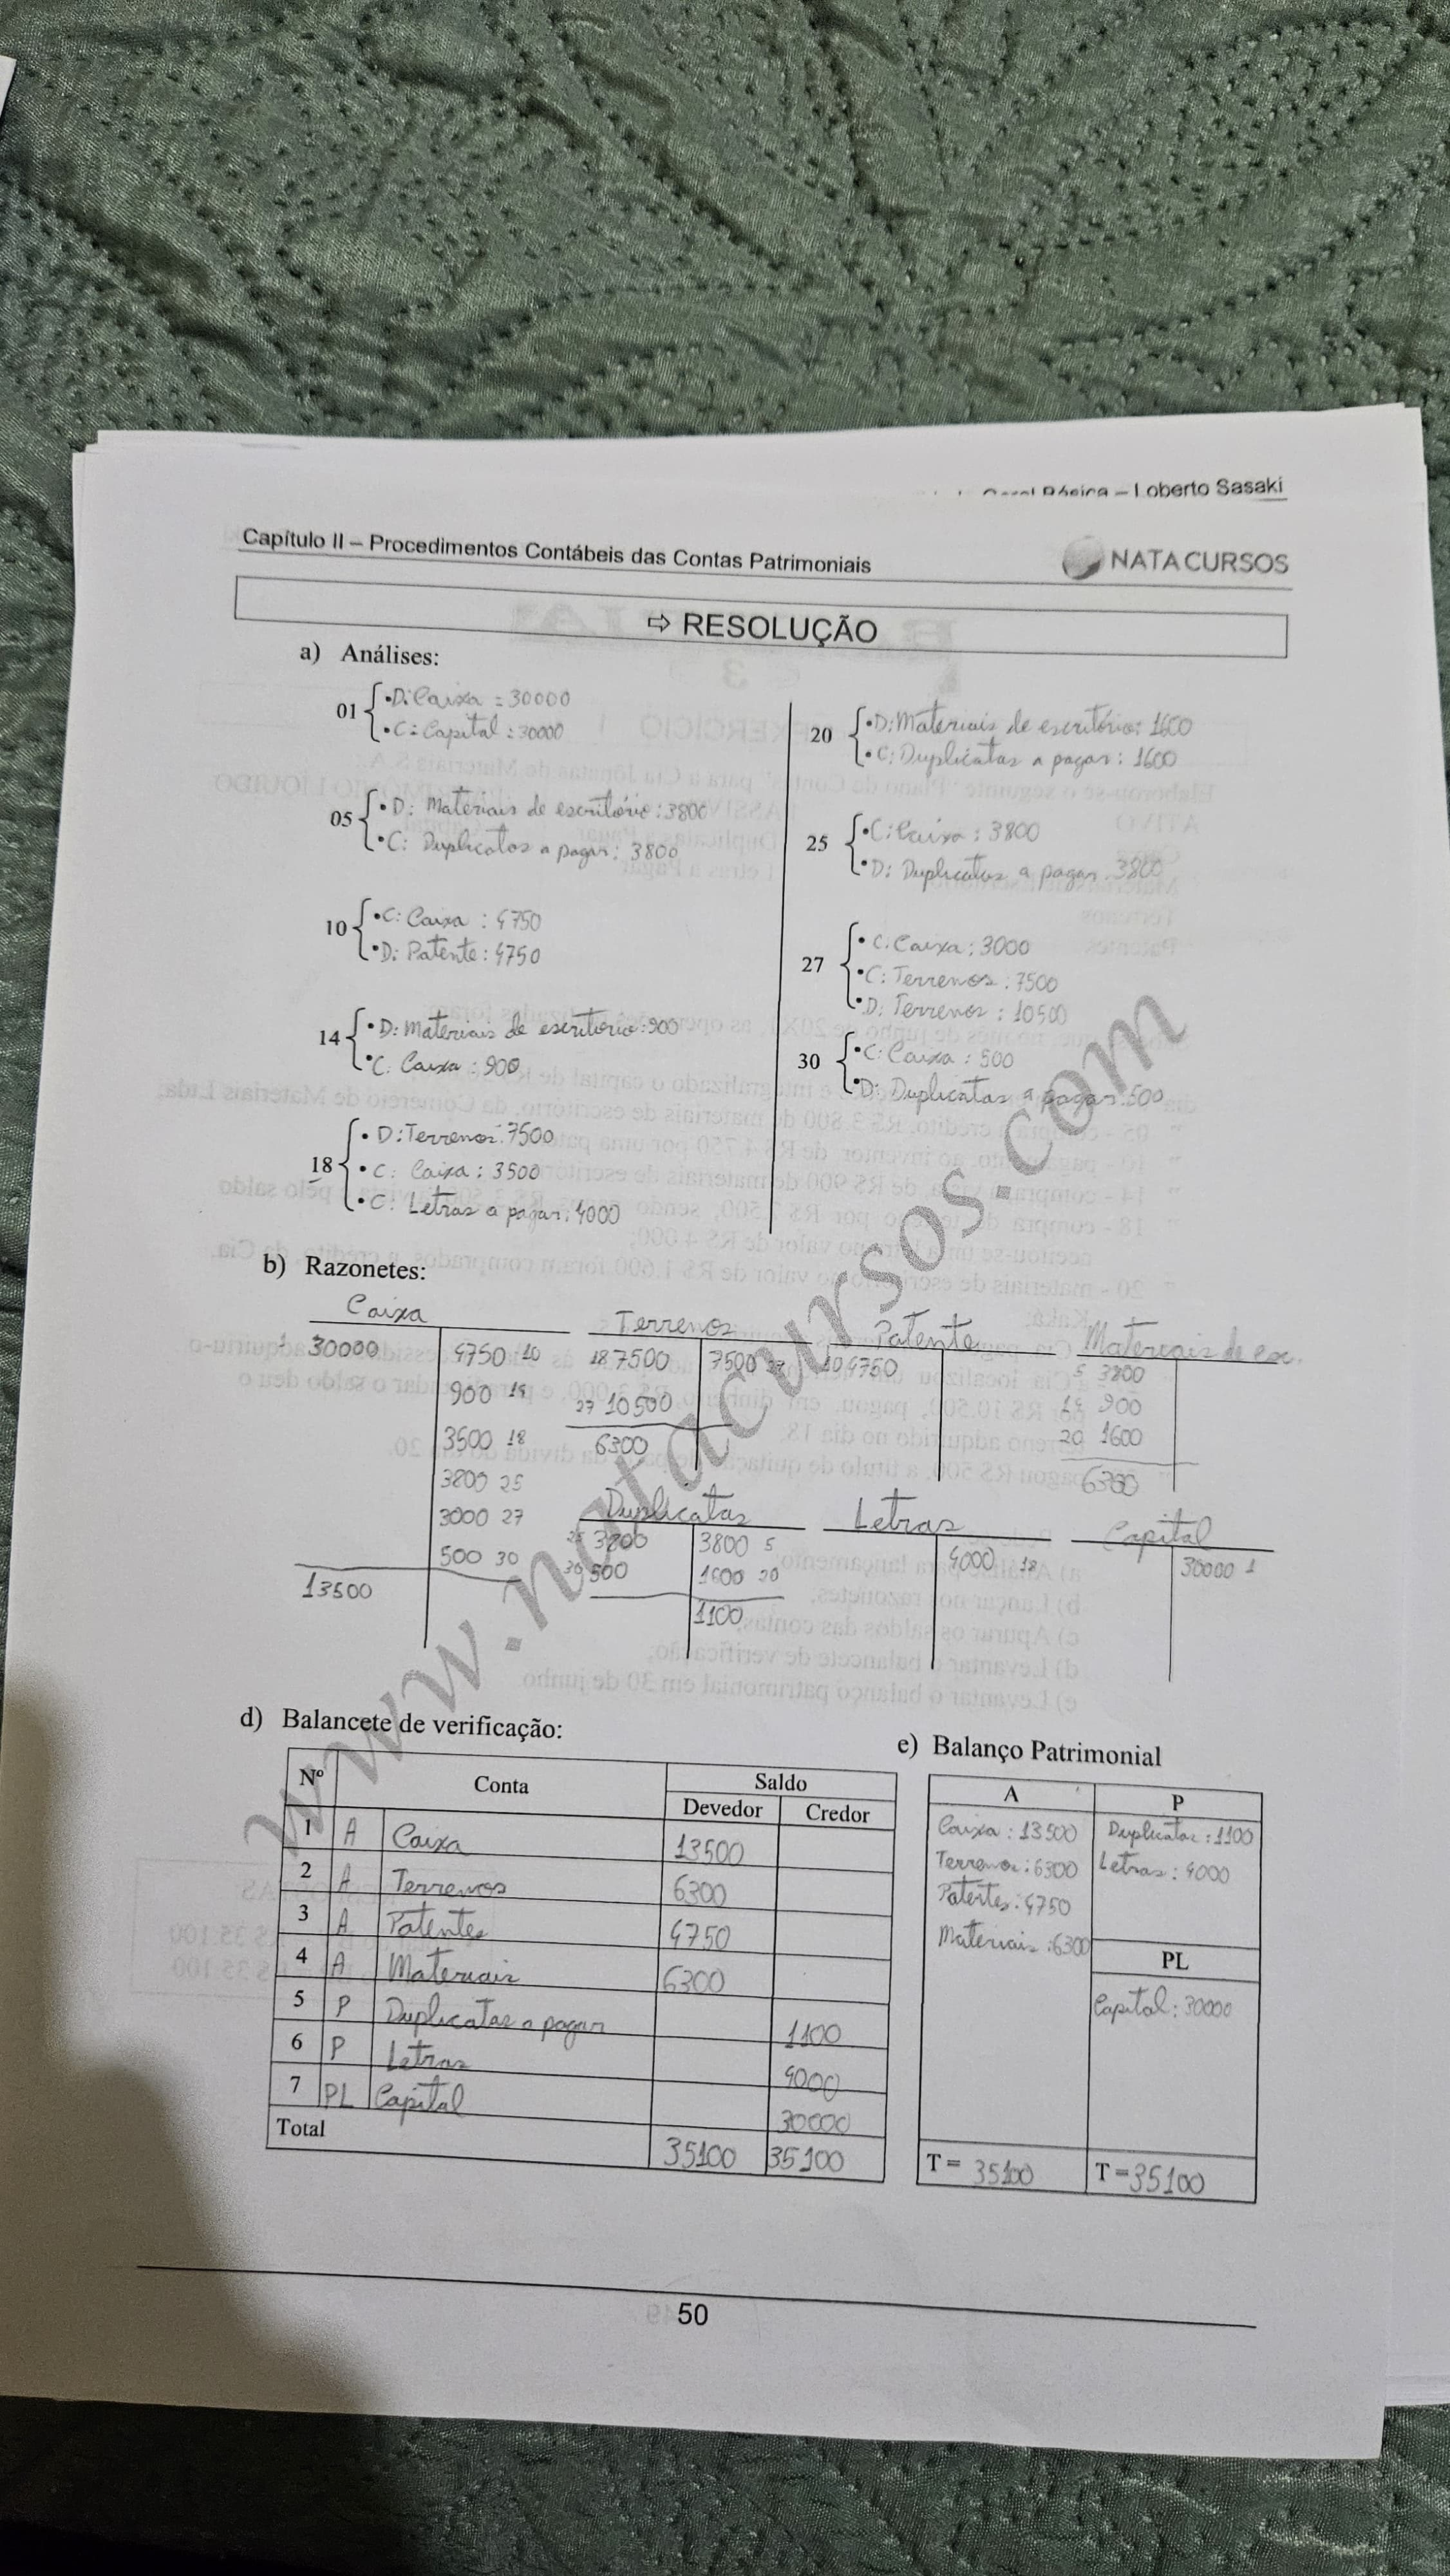 – Loberto Sasaki
Capítulo II – Procedimentos Contábeis das Contas Patrimoniais
NATA CURSOS
⇨ RESOLUÇÃO
a) Análises:
01
• D: Caixa : 30000
• C: Capital : 30000
05
• D: Materiais de escritório : 3800
• C: Duplicatas a pagar : 3800
10
• C: Caixa : 4750
• D: Patente : 4750
14
• D: Materiais de escritorio : 900
• C: Caixa : 900
18
• D: Terrenos : 7500
• C: Caixa : 3500
• C: Letras a pagar : 4000
20
• D: Materiais de escritório: 1600
• C: Duplicatas a pagar : 1600
25
• C: Caixa : 3800
• D: Duplicatas a pagar : 3800
27
• C: Caixa : 3000
• C: Terrenos : 7500
• D: Terrenos : 10500
30
• C: Caixa : 500
• D: Duplicatas a pagar : 500
b) Razonetes:
Caixa
1 30000 4750 10
900 14
3500 18
3800 25
3000 27
500 30
13500
Terrenos
18 7500 7500 27
27 10500
6300
Patente
10 4750
Materiais de esc.
5 3800
14 900
20 1600
6300
Duplicatas
25 3800 3800 5
30 500 1600 20
1100
Letras
4000 18
Capital
30000 1
www.natacursos.com
d) Balancete de verificação:
Nº Conta Saldo
Devedor Credor
1 A Caixa 13500
2 A Terrenos 6300
3 A Patentes 4750
4 A Materiais 6300
5 P Duplicatas a pagar 1100
6 P Letras 4000
7 PL Capital 30000
Total 35100 35100
e) Balanço Patrimonial
A P
Caixa : 13500 Duplicatas : 1100
Terrenos : 6300 Letras : 4000
Patentes : 4750
Materiais : 6300
PL
Capital : 30000
T = 35100 T = 35100
50